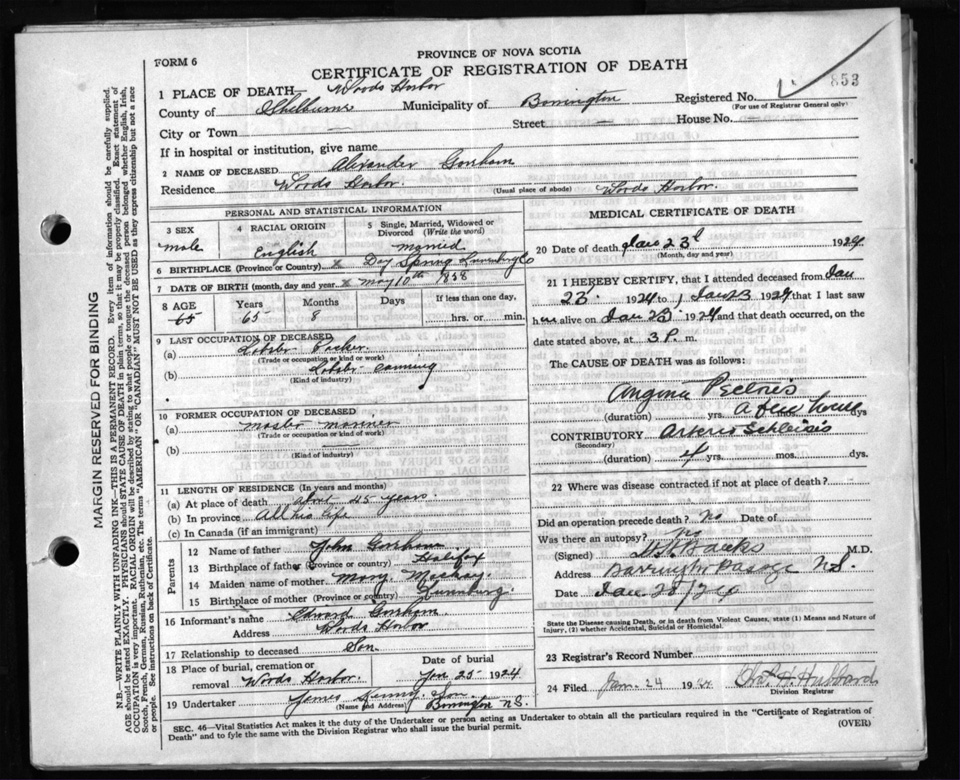 FORM 6
PROVINCE OF NOVA SCOTIA
CERTIFICATE OF REGISTRATION OF DEATH
853
1 PLACE OF DEATH Woods Harbor
County of Shelburne Municipality of Barrington Registered No.
(For use of Registrar General only)
City or Town — Street — House No. —
If in hospital or institution, give name
2 NAME OF DECEASED Alexander Gorham
Residence Woods Harbor. (Usual place of abode) Woods Harbor.
PERSONAL AND STATISTICAL INFORMATION
3 SEX 4 RACIAL ORIGIN 5 Single, Married, Widowed or Divorced (Write the word)
male English married
6 BIRTHPLACE (Province or Country) x Day Spring Lunenburg Co
7 DATE OF BIRTH (month, day and year) x May 10th 1858
8 AGE Years Months Days If less than one day,
65 65 8 hrs. or min.
9 LAST OCCUPATION OF DECEASED
(a) Lobster Packer
(Trade or occupation or kind of work)
(b) Lobster canning
(Kind of industry)
10 FORMER OCCUPATION OF DECEASED
(a) master mariner
(Trade or occupation or kind of work)
(b) —
(Kind of industry)
11 LENGTH OF RESIDENCE (In years and months)
(a) At place of death about 45 years.
(b) In province All his life
(c) In Canada (if an immigrant)
Parents
12 Name of father John Gorham
13 Birthplace of father (Province or Country) Halifax
14 Maiden name of mother Mary Mackay
15 Birthplace of mother (Province or Country) Lunenburg.
16 Informant's name Edward Gorham
Address Woods Harbor
17 Relationship to deceased Son
18 Place of burial, cremation or removal Woods Harbor. Date of burial Jan 25 - 1924
19 Undertaker James Son
(Name and Address) Barrington N.S.
MEDICAL CERTIFICATE OF DEATH
20 Date of death Jan 23d 1924
(Month, day and year)
21 I HEREBY CERTIFY, that I attended deceased from Jan
23. 1924 to Jan 23 1924 that I last saw
him alive on Jan 23. 1924 and that death occurred, on the
date stated above, at 3 P. m.
The CAUSE OF DEATH was as follows:
Angina Pectoris
(duration) yrs. A few hours mos. dys
CONTRIBUTORY Arterio Schlerisis
(Secondary)
(duration) 4 yrs. mos. dys.
22 Where was disease contracted if not at place of death?
Did an operation precede death? No Date of
Was there an autopsy? No
(Signed) Banks M.D.
Address Barrington Passage N.S.
Date Jan 28/24
State the Disease causing Death, or in death from Violent Causes, state (1) Means and Nature of Injury, (2) whether Accidental, Suicidal or Homicidal.
23 Registrar's Record Number
24 Filed Jan. 24 1924 Chas. H. Hubbard
Division Registrar
SEC. 46—Vital Statistics Act makes it the duty of the Undertaker or person acting as Undertaker to obtain all the particulars required in the "Certificate of Registration of
Death" and to fyle the same with the Division Registrar who shall issue the burial permit. (OVER)
MARGIN RESERVED FOR BINDING
N.B.—WRITE PLAINLY, WITH UNFADING INK—THIS IS A PERMANENT RECORD. Every item of information should be carefully supplied.
AGE should be stated EXACTLY. PHYSICIANS should STATE CAUSE OF DEATH in plain terms, so that it may be properly classified. Exact statement of
OCCUPATION is very important. RACIAL ORIGIN will be described by stating to what people or tongue the deceased person belonged whether English, Irish,
Scotch, French, German, Russian, Ruthenian, etc. The terms "AMERICAN" OR "CANADIAN" MUST NOT BE USED as they express citizenship but not a race
or people. See instructions on back of Certificate.